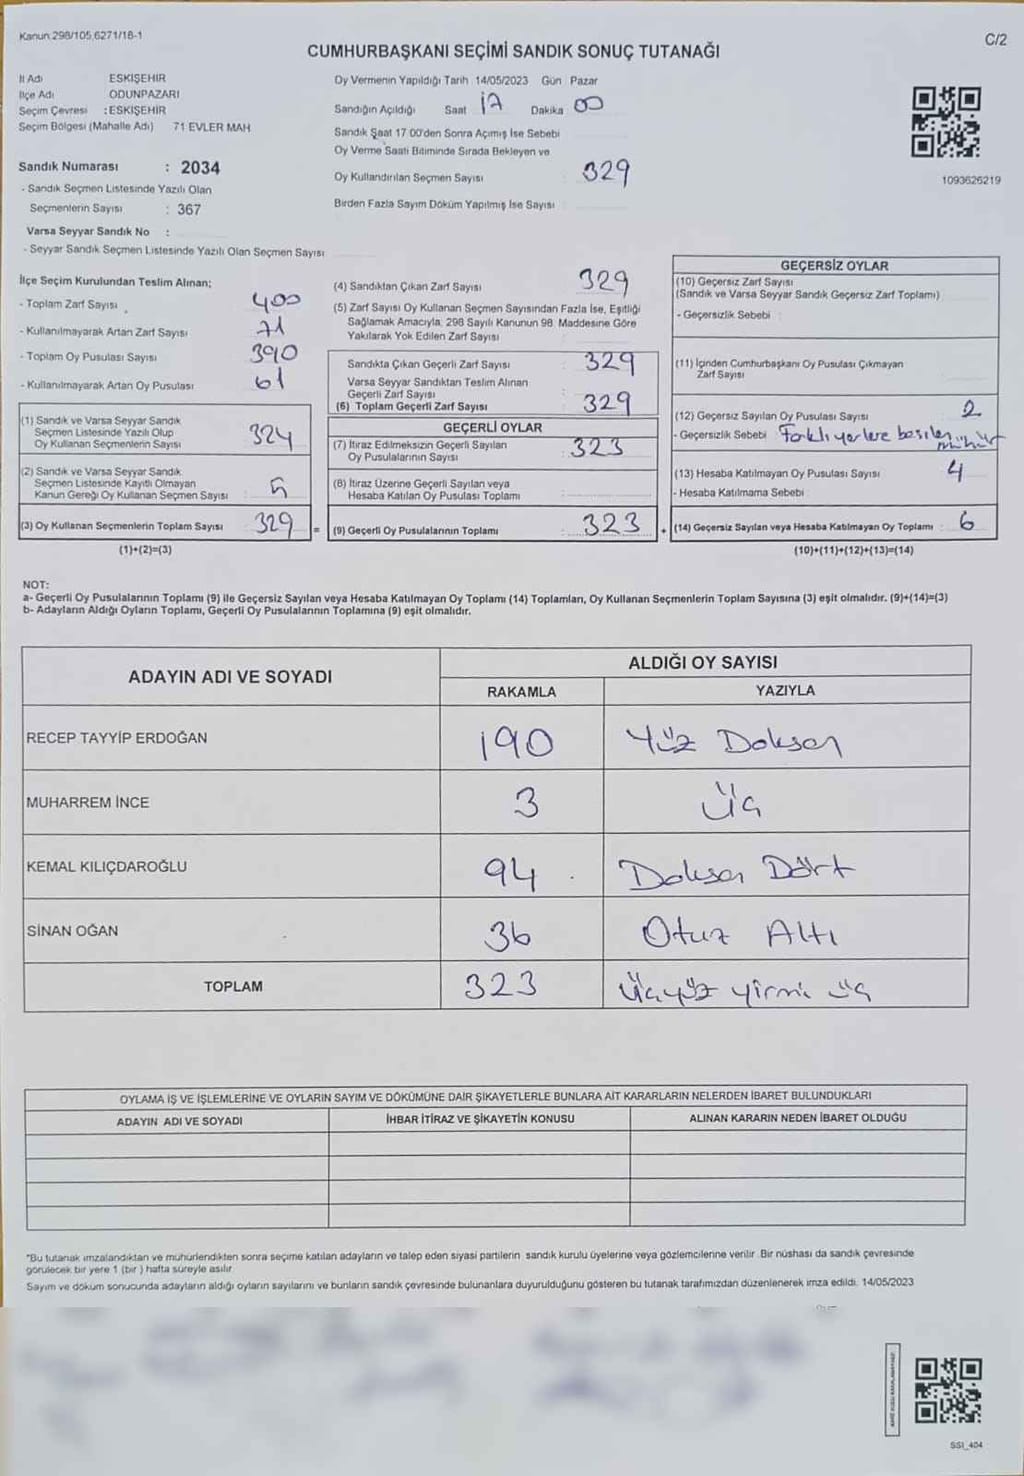 Kanun 298/105,6271/18-1
C/2
CUMHURBAŞKANI SEÇİMİ SANDIK SONUÇ TUTANAĞI
İl Adı ESKİŞEHİR
İlçe Adı ODUNPAZARI
Seçim Çevresi : ESKİŞEHİR
Seçim Bölgesi (Mahalle Adı) 71 EVLER MAH
Sandık Numarası : 2034
- Sandık Seçmen Listesinde Yazılı Olan
Seçmenlerin Sayısı : 367
Varsa Seyyar Sandık No :
- Seyyar Sandık Seçmen Listesinde Yazılı Olan Seçmen Sayısı
Oy Vermenin Yapıldığı Tarih 14/05/2023 Gün Pazar
Sandığın Açıldığı Saat 17 Dakika 00
Sandık Saat 17 00'den Sonra Açımış İse Sebebi
Oy Verme Saati Bitiminde Sırada Bekleyen ve
Oy Kullandırılan Seçmen Sayısı : 329
Birden Fazla Sayım Döküm Yapılmış İse Sayısı :
1093626219
İlçe Seçim Kurulundan Teslim Alınan;
- Toplam Zarf Sayısı 400
- Kullanılmayarak Artan Zarf Sayısı 71
- Toplam Oy Pusulası Sayısı 390
- Kullanılmayarak Artan Oy Pusulası 61
(1) Sandık ve Varsa Seyyar Sandık
Seçmen Listesinde Yazılı Olup
Oy Kullanan Seçmenlerin Sayısı 324
(2) Sandık ve Varsa Seyyar Sandık
Seçmen Listesinde Kayıtlı Olmayan
Kanun Gereği Oy Kullanan Seçmen Sayısı : 5
(3) Oy Kullanan Seçmenlerin Toplam Sayısı 329 =
(1)+(2)=(3)
(4) Sandıktan Çıkan Zarf Sayısı 329
(5) Zarf Sayısı Oy Kullanan Seçmen Sayısından Fazla İse, Eşitliği
Sağlamak Amacıyla, 298 Sayılı Kanunun 98. Maddesine Göre
Yakılarak Yok Edilen Zarf Sayısı
Sandıkta Çıkan Geçerli Zarf Sayısı : 329
Varsa Seyyar Sandıktan Teslim Alınan
Geçerli Zarf Sayısı :
(6) Toplam Geçerli Zarf Sayısı : 329
GEÇERLİ OYLAR
(7) İtiraz Edilmeksizin Geçerli Sayılan
Oy Pusulalarının Sayısı : 323
(8) İtiraz Üzerine Geçerli Sayılan veya
Hesaba Katılan Oy Pusulası Toplamı :
(9) Geçerli Oy Pusulalarının Toplamı : 323 +
GEÇERSİZ OYLAR
(10) Geçersiz Zarf Sayısı
(Sandık ve Varsa Seyyar Sandık Geçersiz Zarf Toplamı)
- Geçersizlik Sebebi :
(11) İçinden Cumhurbaşkanı Oy Pusulası Çıkmayan
Zarf Sayısı
(12) Geçersiz Sayılan Oy Pusulası Sayısı 2
- Geçersizlik Sebebi Farklı yerlere basılan mühür
(13) Hesaba Katılmayan Oy Pusulası Sayısı 4
- Hesaba Katılmama Sebebi
(14) Geçersiz Sayılan veya Hesaba Katılmayan Oy Toplamı : 6
(10)+(11)+(12)+(13)=(14)
NOT:
a- Geçerli Oy Pusulalarının Toplamı (9) ile Geçersiz Sayılan veya Hesaba Katılmayan Oy Toplamı (14) Toplamları, Oy Kullanan Seçmenlerin Toplam Sayısına (3) eşit olmalıdır. (9)+(14)=(3)
b- Adayların Aldığı Oyların Toplamı, Geçerli Oy Pusulalarının Toplamına (9) eşit olmalıdır.
ADAYIN ADI VE SOYADI
ALDIĞI OY SAYISI
RAKAMLA YAZIYLA
RECEP TAYYİP ERDOĞAN 190 Yüz Doksan
MUHARREM İNCE 3 Üç
KEMAL KILIÇDAROĞLU 94 Doksan Dört
SİNAN OĞAN 36 Otuz Altı
TOPLAM 323 Üçyüz yirmi üç
OYLAMA İŞ VE İŞLEMLERİNE VE OYLARIN SAYIM VE DÖKÜMÜNE DAİR ŞİKAYETLERLE BUNLARA AİT KARARLARIN NELERDEN İBARET BULUNDUKLARI
ADAYIN ADI VE SOYADI İHBAR İTİRAZ VE ŞİKAYETİN KONUSU ALINAN KARARIN NEDEN İBARET OLDUĞU
*Bu tutanak imzalandıktan ve mühürlendikten sonra seçime katılan adayların ve talep eden siyasi partilerin sandık kurulu üyelerine veya gözlemcilerine verilir. Bir nüshası da sandık çevresinde
görülecek bir yere 1 (bir) hafta süreyle asılır
Sayım ve döküm sonucunda adayların aldığı oyların sayılarını ve bunların sandık çevresinde bulunanlara duyurulduğunu gösteren bu tutanak tarafımızdan düzenlenerek imza edildi. 14/05/2023
SSI_404